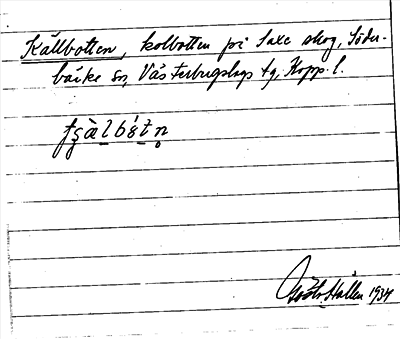 Källbotten, kolbotten på Saxe skog, Söder-
bärke sn, Västerbergslags tg, Kopp. l.
Gösta Hallén 1934